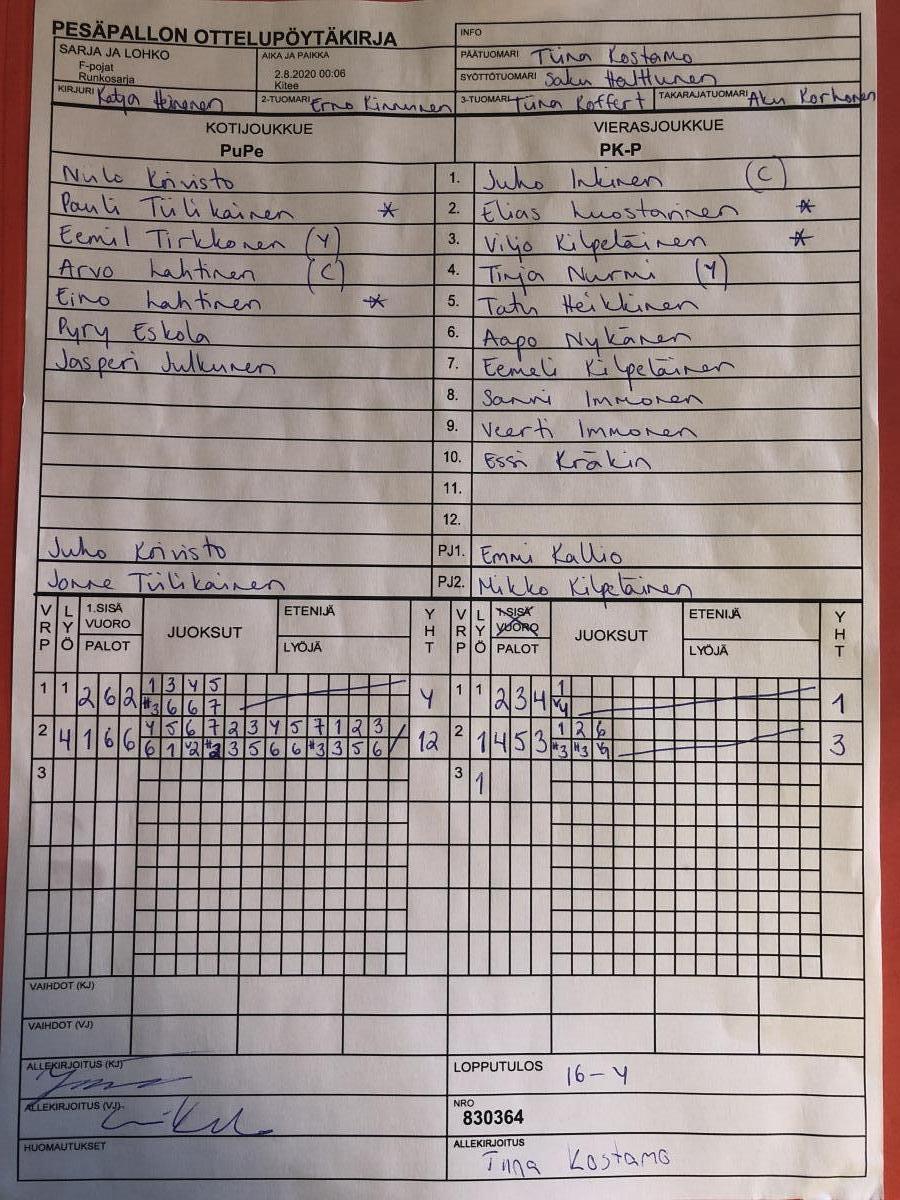 PESÄPALLON OTTELUPÖYTÄKIRJA
INFO
SARJA JA LOHKO
F-pojat
Runkosarja
AIKA JA PAIKKA
2.8.2020 00:06
Kitee
PÄÄTUOMARI Tiina Kostamo
SYÖTTÖTUOMARI Saku Halttunen
KIRJURI Katja Heinonen
2-TUOMARI Erno Kinnunen
3-TUOMARI Tiina Koffert
TAKARAJATUOMARI Aku Korhonen
KOTIJOUKKUE
PuPe
VIERASJOUKKUE
PK-P
Niilo Koivisto 1. Juho Inkinen (C)
Pauli Tiilikainen * 2. Elias Luostarinen *
Eemil Tirkkonen (Y) 3. Viljo Kilpeläinen *
Arvo Lahtinen (C) 4. Tinja Nurmi (Y)
Eino Lahtinen * 5. Tatu Heikkinen
Pyry Eskola 6. Aapo Nykänen
Jasperi Julkunen 7. Eemeli Kilpeläinen
8. Sanni Immonen
9. Veerti Immonen
10. Essi Kräkin
11.
12.
Juho Koivisto PJ1. Emmi Kallio
Jonne Tiilikainen PJ2. Mikko Kilpeläinen
VRP LYÖ 1.SISÄ VUORO PALOT JUOKSUT ETENIJÄ LYÖJÄ YHT VRP LYÖ 1.SISÄ VUORO PALOT JUOKSUT ETENIJÄ LYÖJÄ YHT
1 1 2 6 2 1 3 4 5 4 1 1 2 3 4 1 1
*3 6 6 7
2 4 1 6 6 4 5 6 7 2 3 4 5 7 1 2 3 12 2 1 4 5 3 1 2 6 3
6 1 *2 3 5 6 6 *3 3 5 6 / *3 *3
3 3 1
VAIHDOT (KJ)
VAIHDOT (VJ)
ALLEKIRJOITUS (KJ)
LOPPUTULOS 16-4
ALLEKIRJOITUS (VJ)
NRO
830364
HUOMAUTUKSET
ALLEKIRJOITUS
Tiina Kostamo